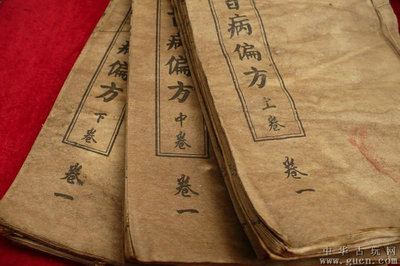 百病偏方
上卷
卷一
病偏方
中卷
卷一
病偏方
下卷
卷一
中华古玩网
www.gucn.com